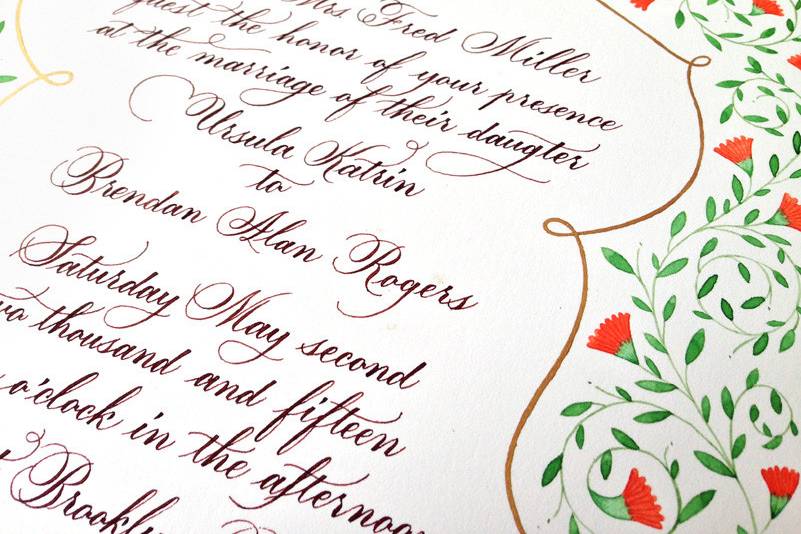 Mrs. Fred Miller
the honor of your presence
at the marriage of their daugter
Ursula Katrin
to
Brendan Alan Rogers
Saturday May second
thousand and fifteen
o'clock in the afternoon